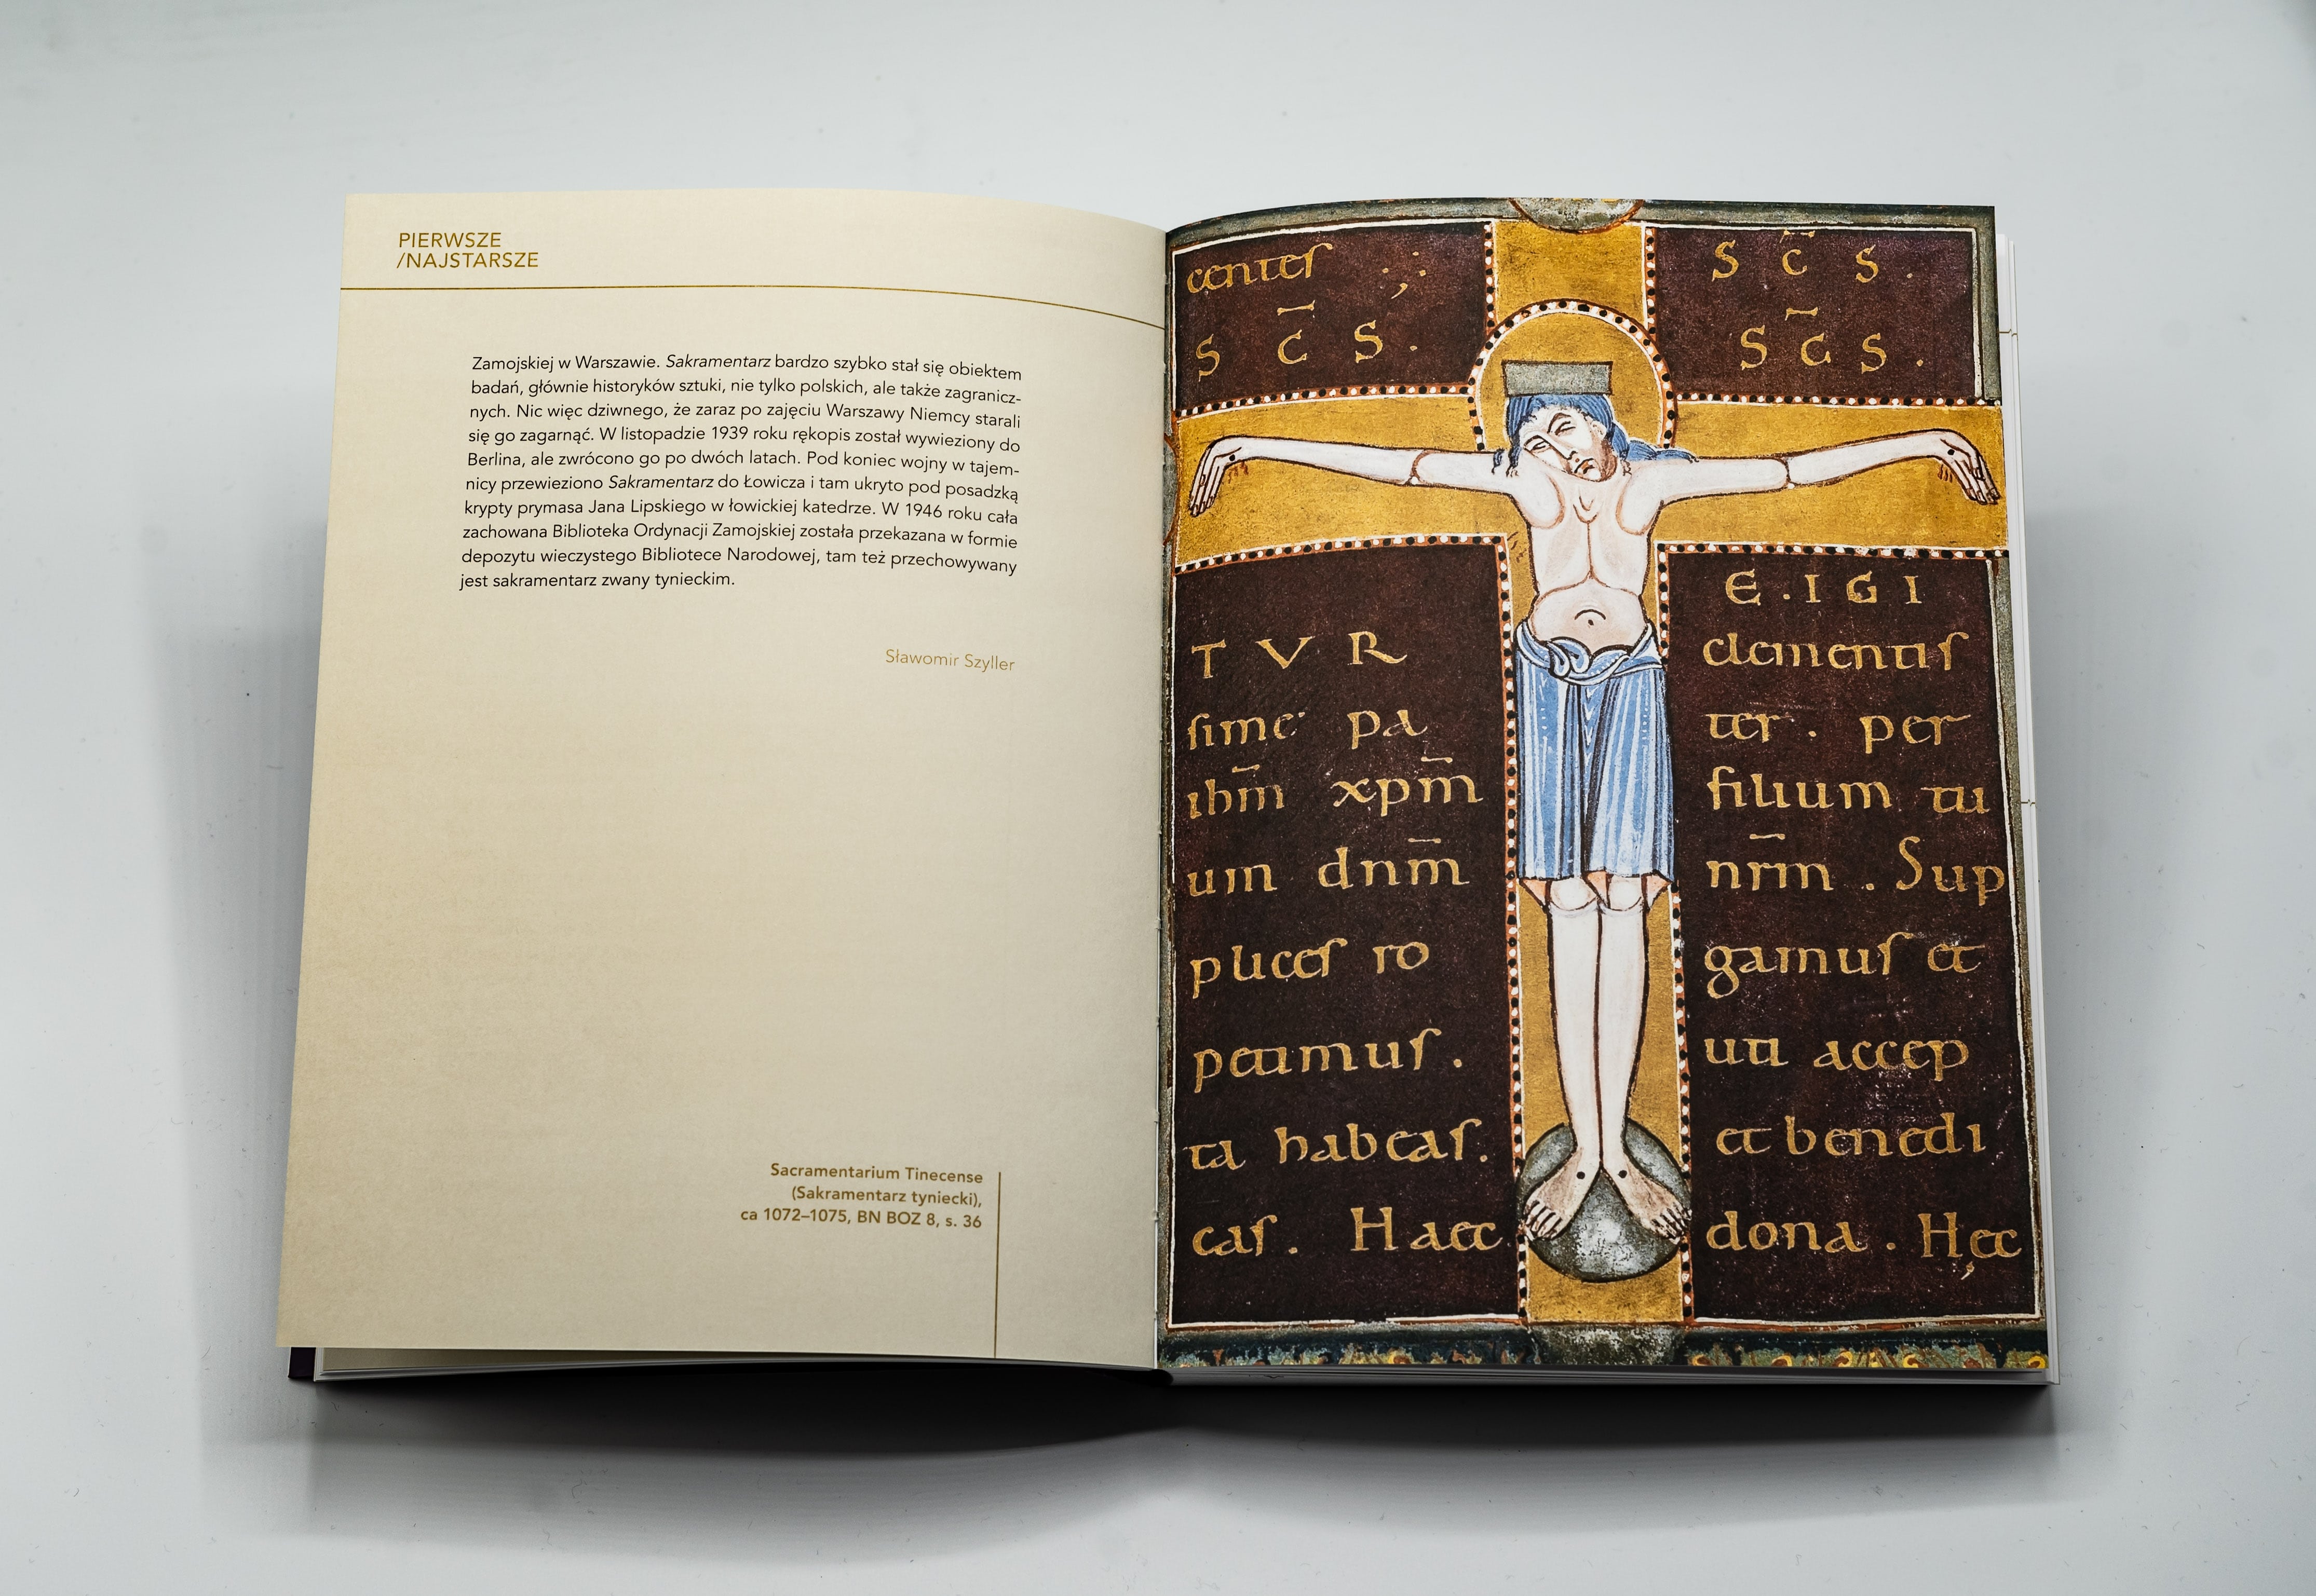 PIERWSZE
/NAJSTARSZE
Zamojskiej w Warszawie. Sakramentarz bardzo szybko stał się obiektem
badań, głównie historyków sztuki, nie tylko polskich, ale także zagranicz-
nych. Nic więc dziwnego, że zaraz po zajęciu Warszawy Niemcy starali
się go zagarnąć. W listopadzie 1939 roku rękopis został wywieziony do
Berlina, ale zwrócono go po dwóch latach. Pod koniec wojny w tajem-
nicy przewieziono Sakramentarz do Łowicza i tam ukryto pod posadzką
krypty prymasa Jana Lipskiego w łowickiej katedrze. W 1946 roku cała
zachowana Biblioteka Ordynacji Zamojskiej została przekazana w formie
depozytu wieczystego Bibliotece Narodowej, tam też przechowywany
jest sakramentarz zwany tynieckim.
Sławomir Szyller
Sacramentarium Tinecense
(Sakramentarz tyniecki),
ca 1072–1075, BN BOZ 8, s. 36
centeſ S c̄ S.
S c̄ S. S c̄ S.
E.IGI
TVR clementiſ
ſime pa ter. per
ihm̄ xpm̄ filium tu
um dnm̄ nr̄m. Sup
pliceſ ro gamuſ et
petimuſ. uti accep
ta habeaſ. et benedi
caſ. Haec dona. Hęc